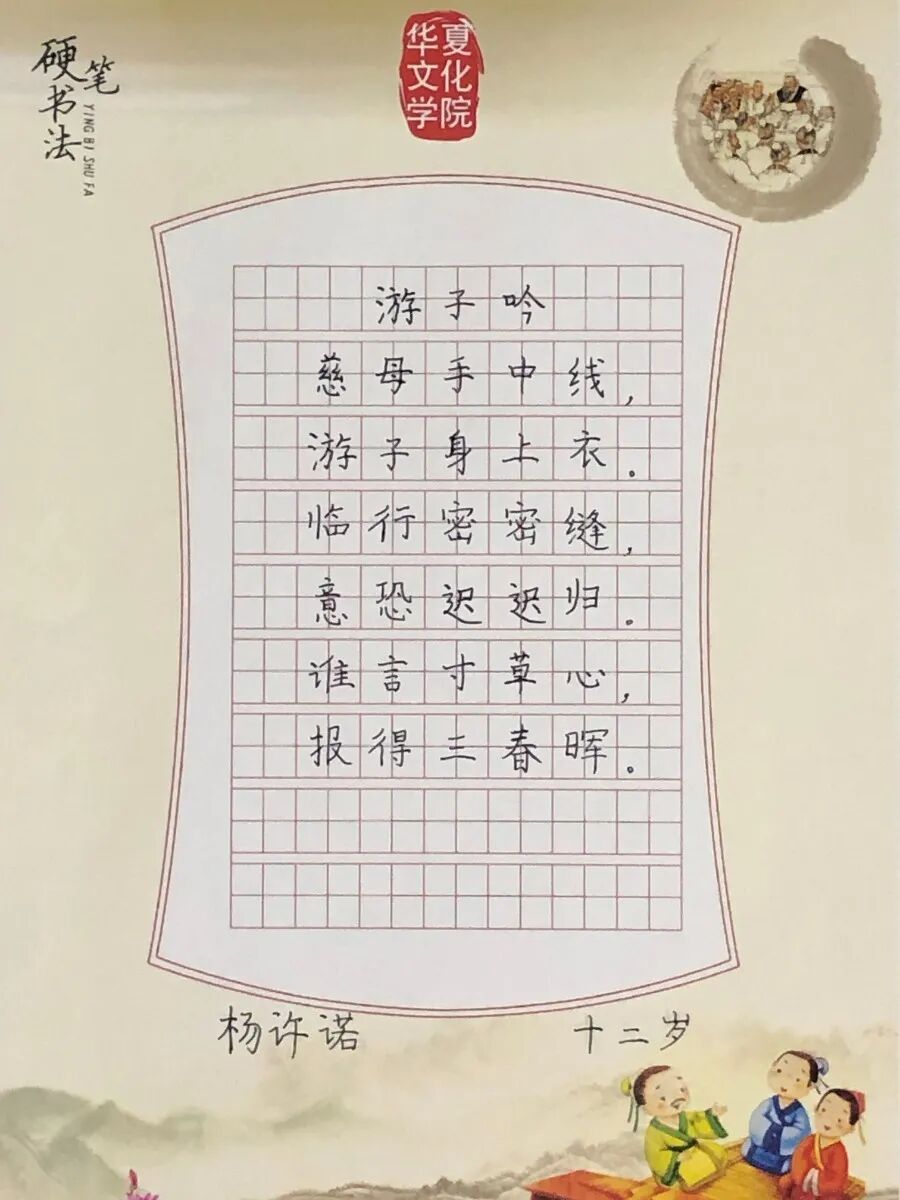 硬笔书法
YING BI SHU FA
华夏文化学院
游子吟
慈母手中线,
游子身上衣。
临行密密缝,
意恐迟迟归。
谁言寸草心,
报得三春晖。
杨许诺
十二岁